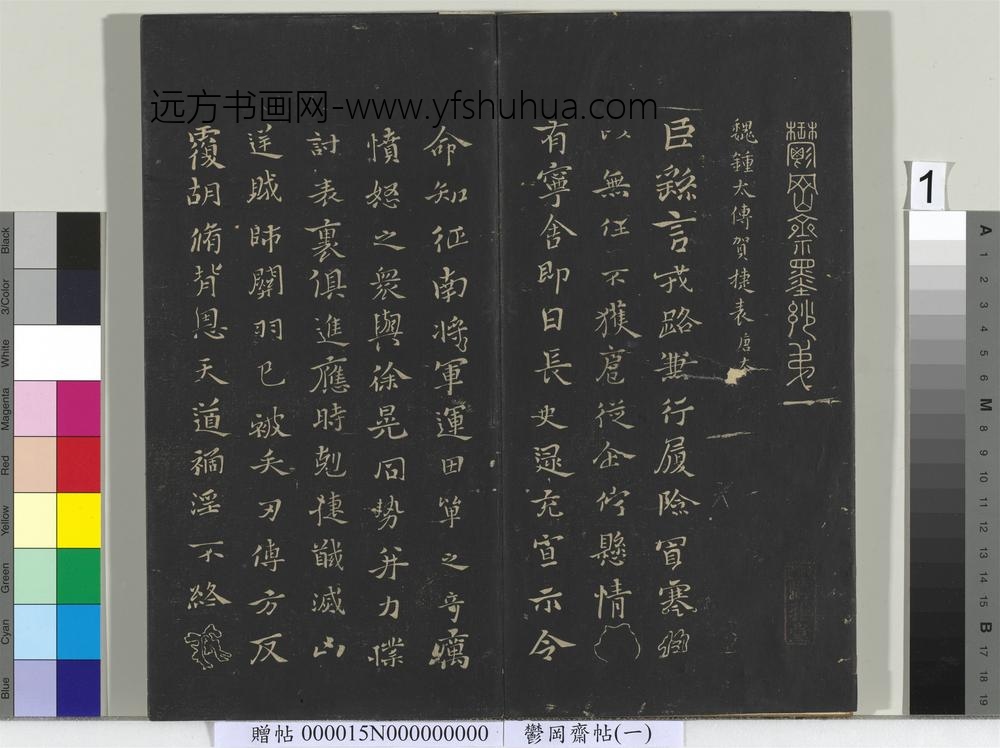 鬱岡齋墨妙第一
魏鍾太傅賀捷表 唐太
臣繇言戎路兼行履險冒寒
以無任不獲扈從企佇懸情
有寧舍即日長史逯充宣示令
命知征南將軍運田單之奇厲
憤怒之衆與徐晃同勢并力
討表裏俱進應時剋捷馘滅凶
逆賊帥關羽已被矢刃傅方反
覆胡脩背恩天道禍淫不終
远方书画网-www.yfshuhua.com
1
Black
3/Color
White
Magenta
Red
Yellow
Green
Cyan
Blue
A
1
2
3
4
5
6
M
8
9
10
11
12
13
14
15
B
17
18
19
贈帖 000015N000000000 鬱岡齋帖(一)